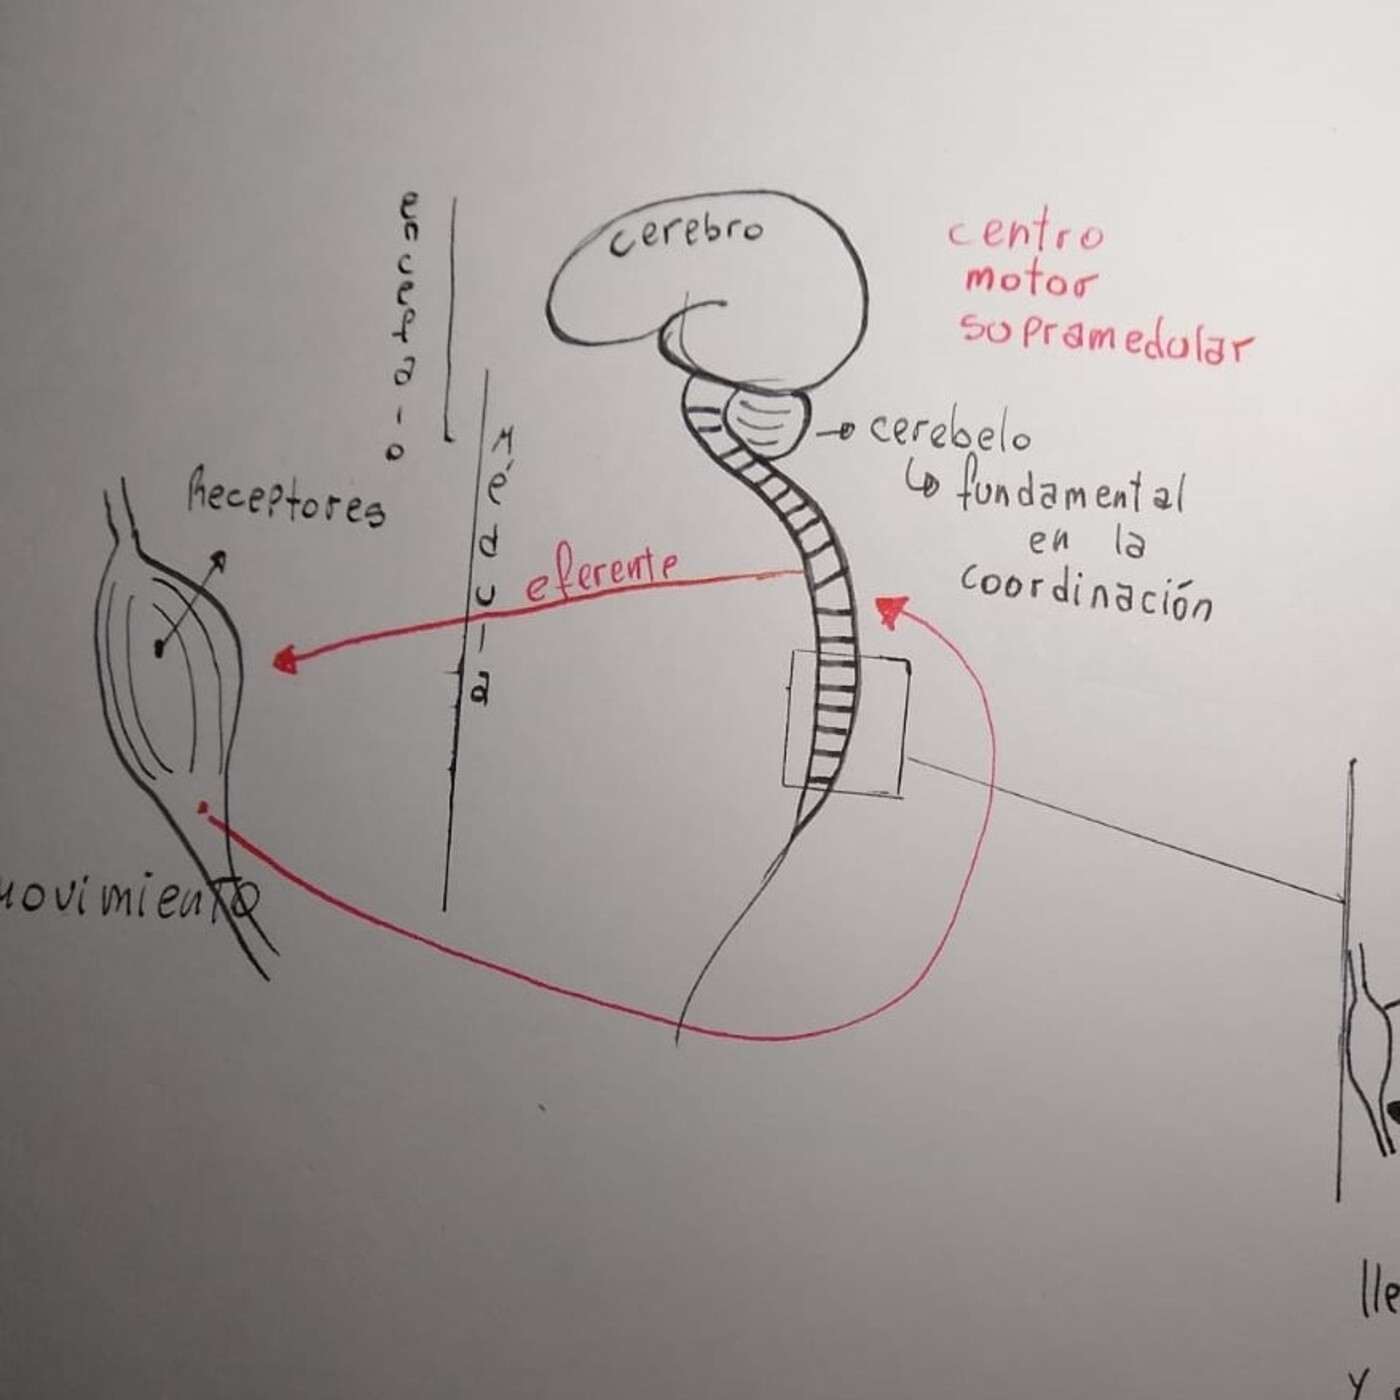 encefalo
cerebro
centro
motor
supramedular
Médula
cerebelo
fundamental
en la
coordinación
Receptores
eferente
movimiento
lle
y